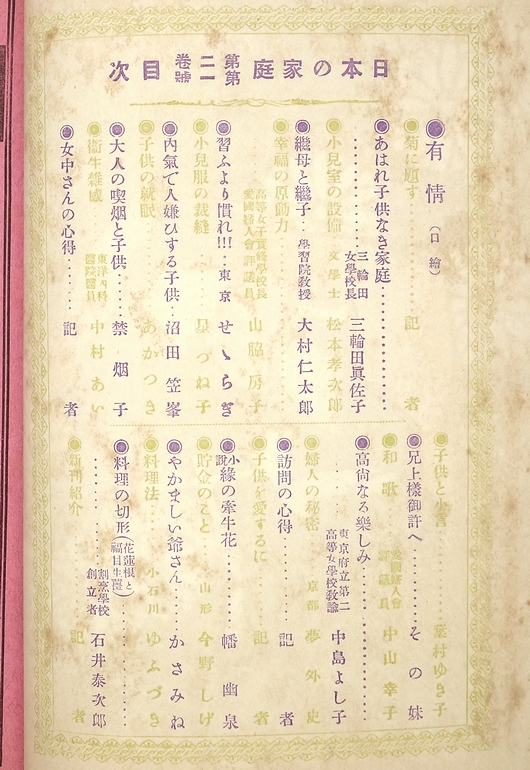 日本の家庭 第二卷 第一號 目次
◉有情（口繪）
◉菊に題す……記者
◉あはれ子供なき家庭……三輪田女學校長 三輪田眞佐子
◉小兒室の設備 文學士 松本孝次郎
◉繼母と繼子…學習院敎授 大村仁太郎
◉幸福の原動力 高等女子實修學校長 愛國婦人會評議員 山脇房子
◉習ふより慣れ!!!…東京 せゝらぎ
◉小兒服の裁縫……星づね子
◉內氣で人嫌ひする子供…沼田笠峯
◉子供の就眠……あかつき
◉大人の喫烟と子供……禁烟子
◉衞生雜感 東洋內科醫院醫員 中村あい
◉女中さんの心得……記者
◉子供と小言……葉村ゆき子
◉兄上樣御許へ……その妹
◉和歌 愛國婦人會評議員 中山幸子
◉高尙なる樂しみ…東京府立第二高等女學校敎諭 中島よし子
◉婦人の秘密 京都 夢外史
◉訪問の心得……記者
◉子供を愛するに……記者
◉小說 緣の牽牛花……幡幽泉
◉貯金のこと…山形 今野しげ
◉やかましい爺さん……かさみね
◉料理法…小石川 ゆふづき
◉料理の切形（花蓮根と福目生薑）……割烹學校創立者 石井泰次郎
◉新刊紹介……記者